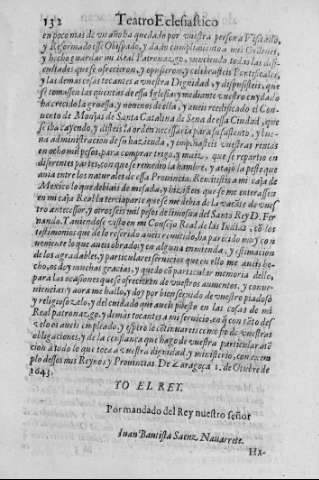 132 Teatro Eclesiastico
en poco mas de un año ha quedado por vuestra persona Visitado,
y Reformado esse Obispado, y dado cumplimiento a mis Ordenes,
y hecho guardar mi Real Patronazgo, venciendo todas las difi-
cultades que se ofrecieron, y opusieron, y celebrasteis Pontificales,
y las demas cosas tocantes a vuestra Dignidad, y dispusisteis, que
se tomassen las quentas de essa Iglesia, y mediante vuestro cuydado
ha crecido la gruessa, y novenos della, y aveis reedificado el Con-
uento de Monjas de Santa Catalina de Sena dessa Ciudad, que
se iba cayendo, y disteis la orden necessaria para su sustento, y bue-
na administracion de su hazienda, y empeñasteis vuestras rentas
en ocho mil pesos, para comprar trigo, y maiz, que se repartio en
diferentes partes, con que se remedio la hambre, y atajò la peste que
avia entre los naturales de essa Provincia. Remitisteis a mi caja de
Mexico lo que debiais de mesada, y hizisteis que se me enterasse
en mi caja Real la tercia parte que se me debia de la vacante de vues-
tro antecessor, y otros seis mil pesos de limosna del Santo Rey D. Fer-
nando. Y aviendose visto en mi Consejo Real de las Indias, cõ los
testimonios que de lo referido aveis remitido, ha parecido muy con-
veniente lo que aveis obrado, y en alguna enmienda, y estimacion
de los agradables, y particulares servicios que en ello me aveis he-
cho, os doy muchas gracias, y quedo cõ particular memoria dello,
para las ocasiones que se ofrecieren de vuestros aumentos, y conve-
niencias, y aora me hallo, y doy por bien servido de vuestro piadoso
y religioso zelo, y del cuidado que aveis puesto en las cosas de mi
Real patronazgo, y demas tocantes a mi servicio, en q con tãto des-
velo os aveis empleado, y espero lo cõtinuareis como fio de vuestras
obligaciones, y de la confiança que hago de vuestro particular atè-
cion à todo lo que toca a vuestra dignidad, y ministerio, con exem-
plo de essos mis Reyno, y Provincias De Zaragoça 1. de Otubre de
1643.
YO EL REY.
Por mandado del Rey nuestro señor
Iuan Bautista Saenz Nauarrete.
Ha-